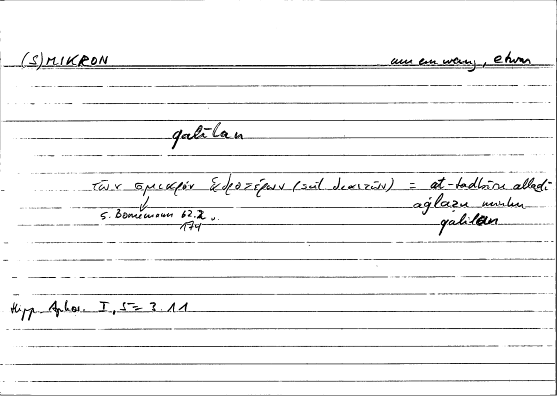 (S)MIKRON um ein wenig, etwas
qalīlan
τῶν σμικρὸν ἁδροτέρων (scil. διαιτῶν) = at-tadbīru alladī
aġlaẓu minhu
qalīlan
s. Bonnemann 62.2 u.
174
Hipp. Aphor. I, 5 = 3.11